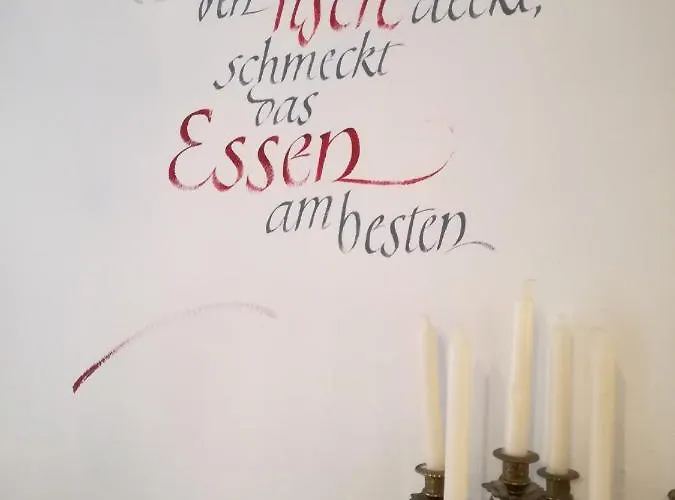 den Tisch deckt,
schmeckt
das
Essen
am besten